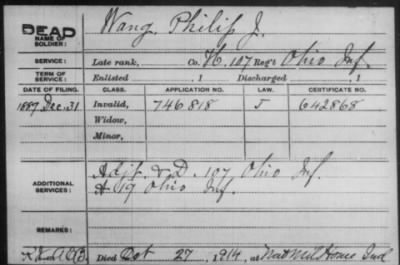 DEAD Wang, Philip J.
NAME OF
SOLDIER:
SERVICE: Late rank, Co. H, 107 Reg't Ohio Inf.
TERM OF
SERVICE: Enlisted , 1 Discharged , 1
DATE OF FILING. CLASS. APPLICATION NO. LAW. CERTIFICATE NO.
1887 Dec. 31 Invalid, 746818 J 642868
Widow,
Minor,
ADDITIONAL
SERVICES: & D. 107 Ohio Inf.
& 19 Ohio Inf.
REMARKS:
Died Oct 27, 1914, at Nat Mil Home Ind